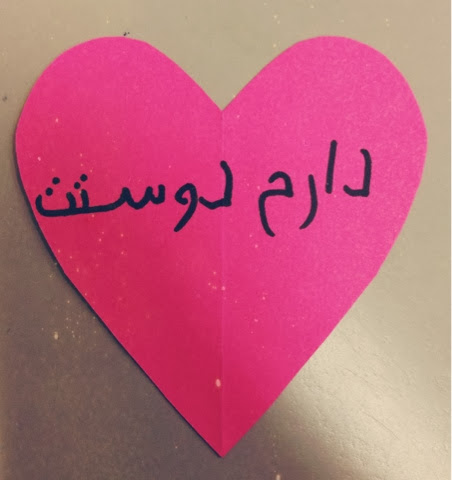 دارم دوستت